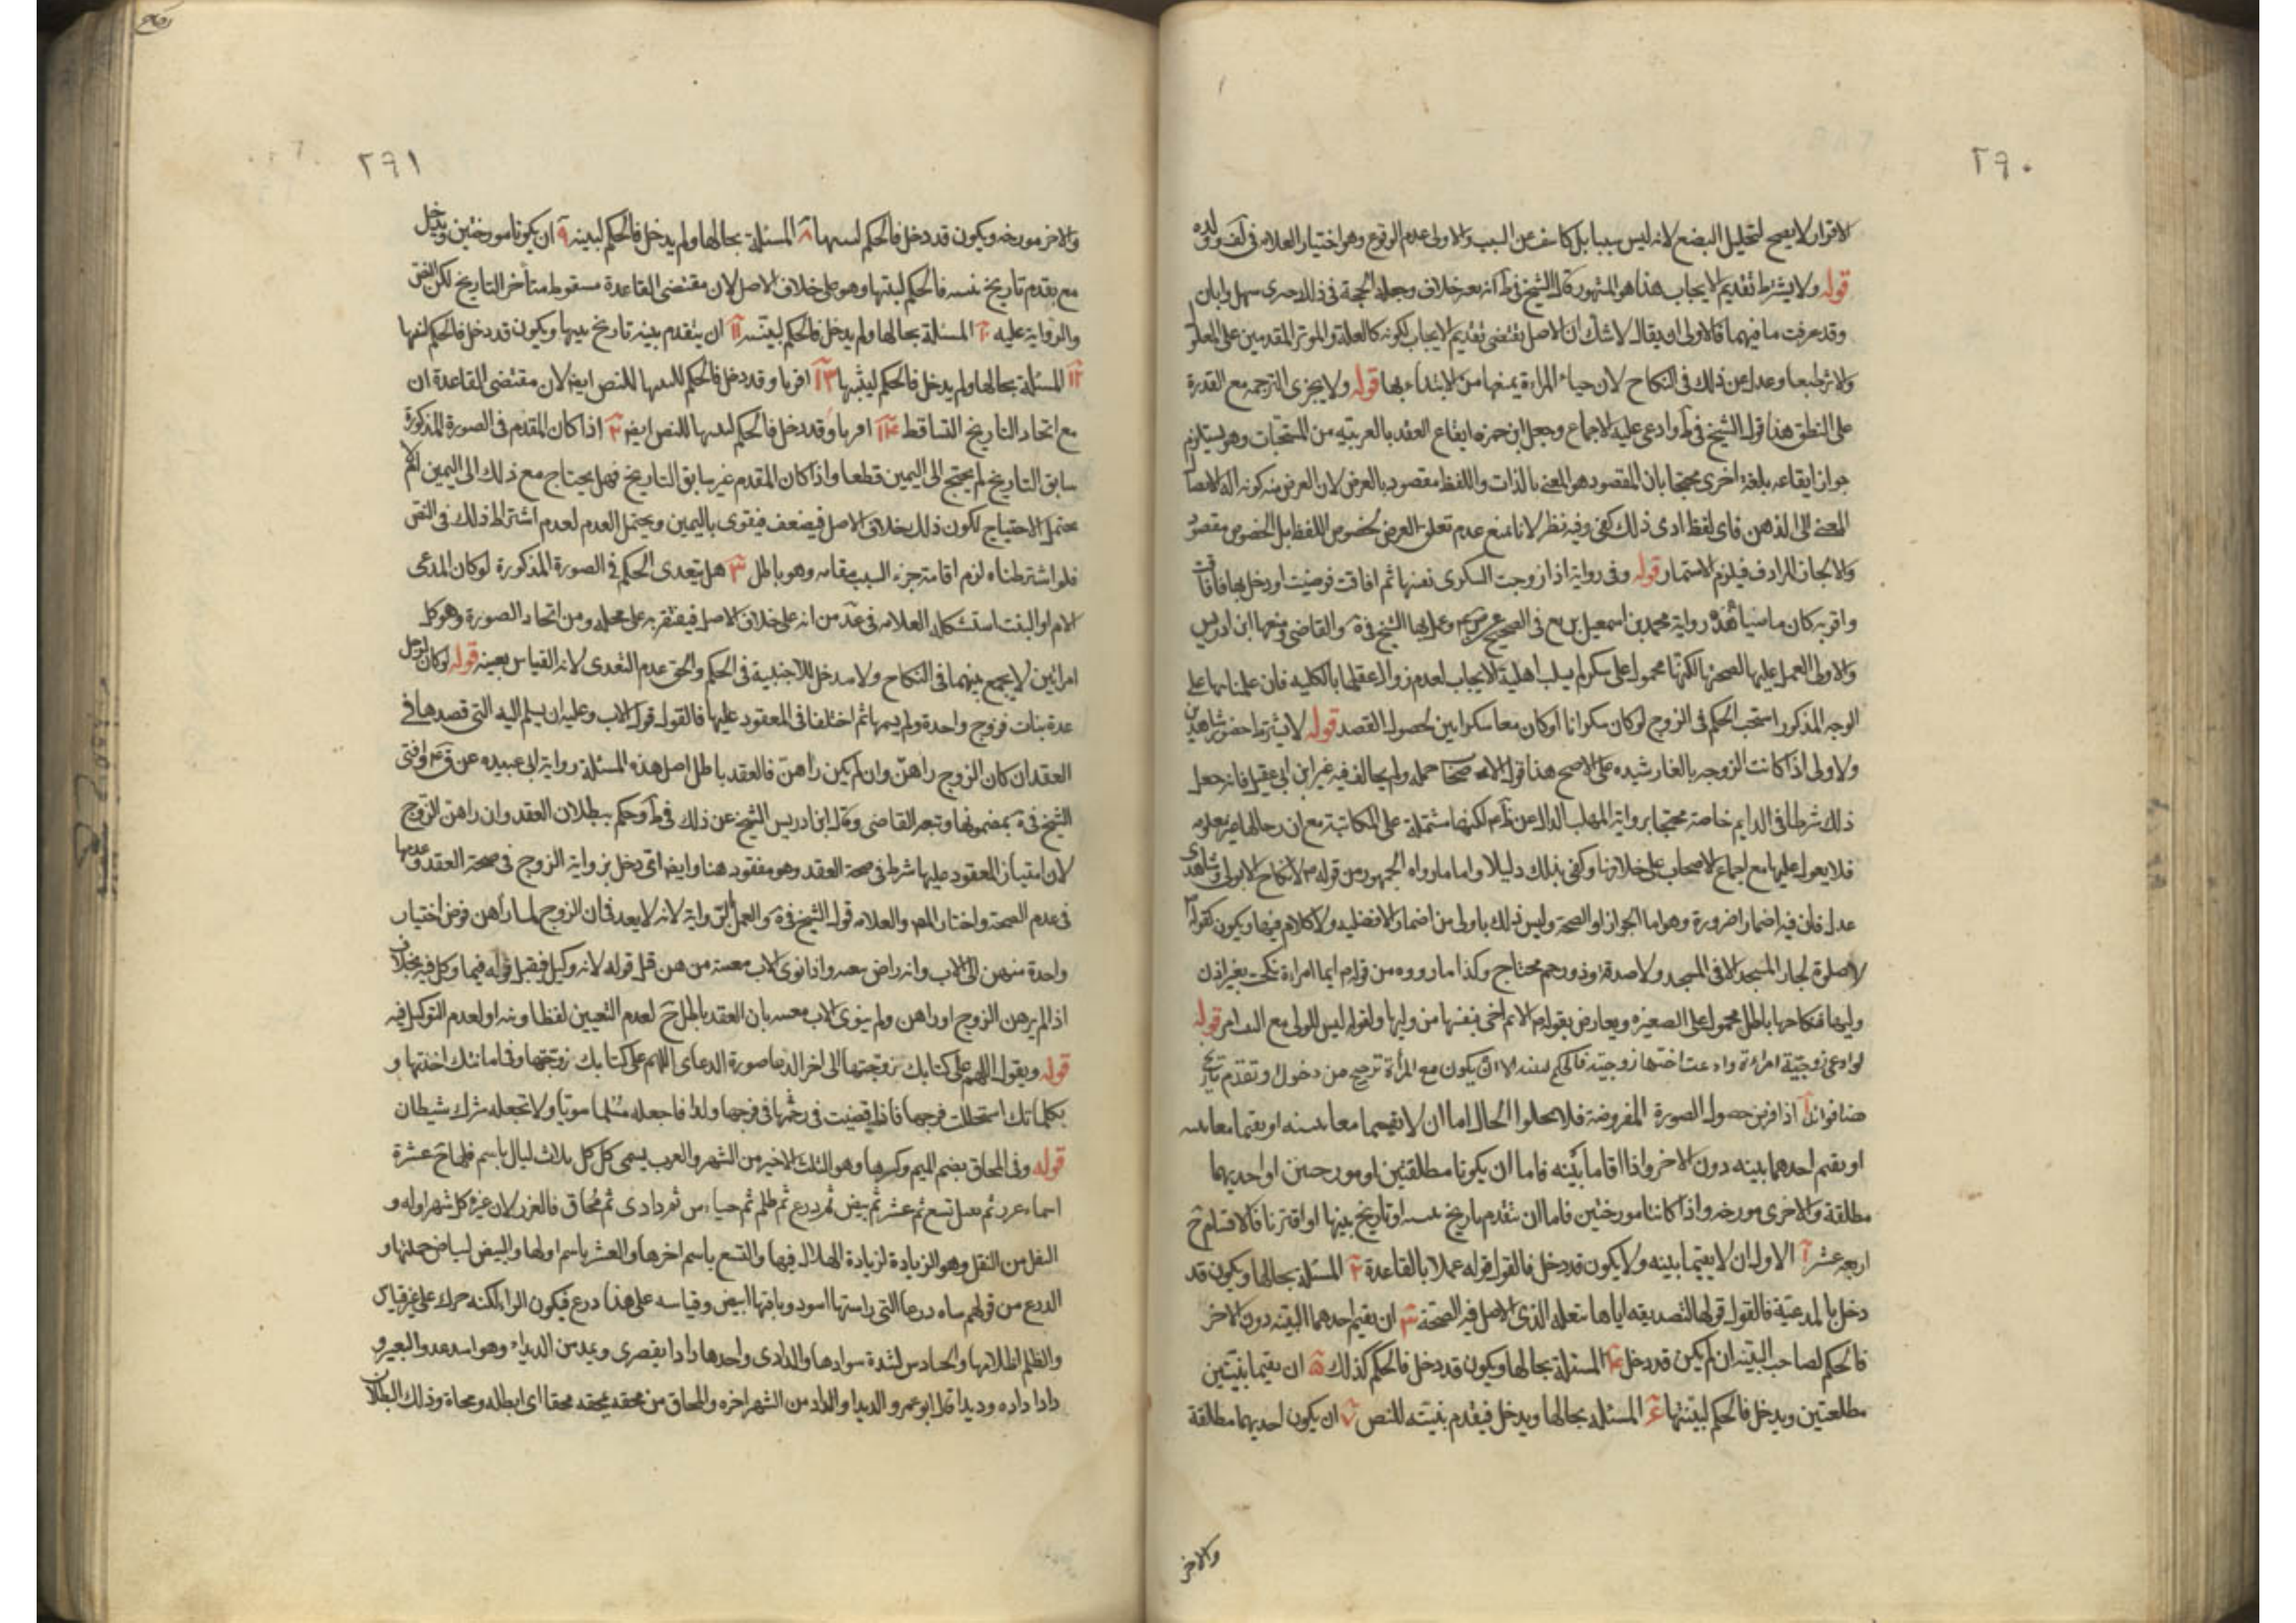 ٢٩٠
الاقرار لا يصح لتحليل البضع لانه ليس سببا بل كاشف عن السبب والاولى عدم الوقوع وهو اختيار العلامه فى لف وولده
قوله ولا يشترط تقديم الايجاب هذا هو المشهور قال الشيخ فى ط انه بعد خلاف وجعله الحجة فى ذلك سهل وابان
وقد عرفت ما فيهما فالاولى ان يقال لا شك ان الاصل يقتضى تقديم الايجاب لكونه كالعلة والموثر المقدمين على المعلول
والاثر طبعا وعدل عن ذلك فى النكاح لان حياء المراءة يمنعها من الابتداء بها قوله ولا يجزى الترجمه مع القدرة
على النطق هذا قول الشيخ فى ط وادعى عليه الاجماع وجعل ابن حمزه ايقاع العقد بالعربيه من المستحبات وهو يستلزم
جواز ايقاعه بلغة اخرى محتجا بان المقصود هو المعنى بالذات واللفظ مقصود بالعرض لان الغرض منه كونه اله لايصال
المعنى الى الذهن فاى لفظ ادى ذلك كفى وفيه نظر لانا نمنع عدم تعلق الغرض بخصوص اللفظ بل الخصوص مقصود
والا لجاز المرادف فيلزم الاستمار قوله وفى رواية اذا زوجت السكرى نفسها ثم افاقت فرضيت او دخل بها فافاقت
واقرته كان ماضيا هذه رواية محمد بن اسمعيل بن بزيع فى الصحيح وعمل بها الشيخ فى ية والقاضى ومنعها ابن ادريس
والاولى العمل عليها لصحتها لكنها محمول على سكر لم يسلب اهلية الايجاب لعدم زوال عقلها بالكليه فان علمنا بها على
الوجه المذكور استحب الحكم فى الزوج لو كان سكرانا او كان معا سكرانين لحصول القصد قوله لا يشترط حضور شاهدين
ولا ولى اذا كانت الزوجه بالغا رشيده على الاصح هذا قول ولم يخالف فيه غير ابن ابى عقيل فانه جعل
ذلك شرطا فى الدايم خاصة محتجا برواية المهلب الدلال عن لكنها مشتملة على المكاتبة مع ان رجالها غير معلومه
فلا يعول عليها مع اجماع الاصحاب على خلافها وكفى بذلك دليلا واما ما رواه الجمهور من قوله ص لا نكاح الا بولى وشاهدى
عدل فان فيه اضمارا ضرورة وهو اما الجواز او الصحة وليس ذلك باولى من اضمار الافضليه ولا كلام فيها ويكون كقوله
لا صلوة لجار المسجد الا فى المسجد ولا صدقة وذو رحم محتاج وكذا ما رووه من قوله ايما امراءة نكحت بغير اذن
وليها فنكاحها باطل محمول على الصغيره ويعارض بقوله الايم احق بنفسها من وليها ولقوله ليس للولى مع الثيب امر قوله
لو ادعى زوجية امراءة وادعت اختها زوجيته فالحكم لبينته الا ان يكون مع المرأة ترجيح من دخول او تقدم تاريخ
هنا فوائد آ اذا فرض حصول الصورة المفروضة فلا يخلوا الحال اما ان لا يقيما معا بينه او يقيما معا بينه
او يقيم احدهما بينه دون الاخر واذا اقاما بينه فاما ان يكونا مطلقتين او مورختين او احديهما
مطلقة والاخرى مورخه واذا كانتا مورختين فاما ان تتقدم تاريخ بينته او تاريخ بينتها او اقترنا فالاقسام ح
اربعه عشر آ الاول ان لا يقيما بينه ولا يكون قد دخل فالقول قوله عملا بالقاعدة ٢ المسئلة بحالها ويكون قد
دخل بالمدعية فالقول قولها لتصديقه اياها بفعله الذى الاصل فيه الصحة ٣ ان يقيم احدهما البينه دون الاخر
فالحكم لصاحب البينه ان لم يكن قد دخل ٤ المسئلة بحالها ويكون قد دخل فالحكم كذلك ٥ ان يقيما بينتين
مطلقتين ويدخل فالحكم لبينتها ٦ المسئلة بحالها ويدخل فيقدم بينته للنص ٧ ان يكون احديهما مطلقة
والاخر
٢٩١
والاخر مورخه ويكون قد دخل فالحكم لبينتها ٨ المسئلة بحالها ولم يدخل فالحكم لبينته ٩ ان يكونا مورختين ويدخل
مع تقدم تاريخ بينته فالحكم لبينتها وهو على خلاف الاصل لان مقتضى القاعدة سقوط متأخر التاريخ لكن النص
والرواية عليه ١٠ المسئلة بحالها ولم يدخل فالحكم لبينته ١١ ان يتقدم بينه تاريخ بينتها ويكون قد دخل فالحكم لبينتها
١٢ المسئلة بحالها ولم يدخل فالحكم لبينتها ١٣ اقرنا وقد دخل فالحكم لبينتها للنص ايضا لان مقتضى القاعدة ان
مع اتحاد التاريخ التساقط ١٤ اقرنا وقد دخل فالحكم لبينتها للنص ايضا ٢ اذا كان المقدم فى الصورة المذكورة
سابق التاريخ لم يحتج الى اليمين قطعا واذا كان المقدم غير سابق التاريخ فهل يحتاج مع ذلك الى اليمين ام لا
يحتمل الاحتياج لكون ذلك خلاف الاصل فيضعف فيقوى باليمين ويحتمل العدم لعدم اشتراط ذلك فى النص
فلو اشترطناه لزم اقامة جزء السبب مقامه وهو باطل ٣ هل يتعدى الحكم فى الصورة المذكورة لو كان المدعى
الام او البنت استشكله العلامه فى عد من انه على خلاف الاصل فيقتصر به على محله ومن اتحاد الصورة وهو كل
امراتين لا يجمع بينهما فى النكاح ولا مدخل للاجنبية فى الحكم والحق عدم التعدى لانه القياس بعينه قوله لو كان لرجل
عدة بنات فزوج واحدة ولم يسمها ثم اختلفا فى المعقود عليها فالقول قول الاب وعليه ان يسلم اليه التى قصدها فى
العقد ان كان الزوج راهن وان لم يكن راهن فالعقد باطل اصل هذه المسئلة رواية ابى عبيده عن وافتى
الشيخ فى ية بمضمونها وتبعه القاضى وقال ابن ادريس الشيخ عن ذلك فى ط وحكم ببطلان العقد وان راهن الزوج
لان امتياز المعقود عليها شرط فى صحة العقد وهو مفقود هنا وايضا اى دخل لرواية الزوج فى صحة العقد وعدمها
فى عدم الصحة واختار المص والعلامه قول الشيخ فى ية والعمل بالرواية لانه لا يعد فان الزوج لما راهن فوض اختيار
واحدة منهن الى الاب وانه راض واذا نوى الاب معينة من هن قبل قوله لانه وكيل فيقبل قوله فيما وكل فيه بخلاف
اذا لم يرهن الزوج او راهن ولم ينوى الاب فان العقد باطل ح لعدم التعيين لفظا ونية او لعدم التوكيل فيه
قوله ويقول اللهم على كتابك تزوجتها الى اخر الدعا صورة الدعاء اللهم على كتابك تزوجتها وفى امانتك اخذتها و
بكلماتك استحللت فرجها فان قضيت فى رحمها فى فرجها ولدا فاجعله مسلما سويا ولا تجعله شرك شيطان
قوله وفى المحاق بضم الميم وكسرها وهو الثلث الاخير من الشهر والعرب يسمى كل ثلاث ليال باسم فلها ح عشرة
اسماء غرر ثم نفل تسع ثم عشر ثم بيض ثم درع ثم ظلم ثم دادى ثم محاق فالغرر لان غرة كل شهر اوله و
النفل من النفل وهو الزيادة لزيادة الهلال فيها والتسع باسم اخرها والعشر باسم اولها والبيض لبياض جملتها و
الدرع من قولهم شاه درعا التى راسها اسود وباقيها ابيض وقياسه على هذا درع فيكون الراء لكنه حرك على غير قياس
والظلم لظلامها والحنادس لشدة سوادها والدادى واحدها دادا بقصرى ويمد
دادا داده وديدا قال ابو عمرو الديدا والداد من الشهر اخره والمحاق من محقه يمحقه محقا اى ابطله ومحاه وذلك لبطلان